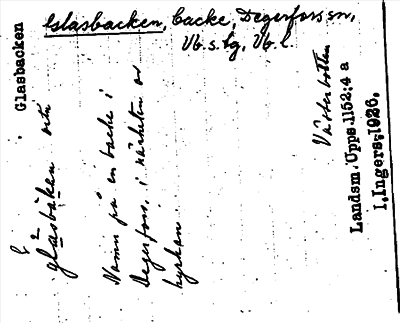 Glasbacken, backe, Degerfors sn,
Vb.s.bg, Vb. l.
Glasbacken
glasbakan
Namn på en backe i
Degerfors, i närheten av
kyrkan
Västerbotten
Landsm. Upps. 1152:4 a
I. Ingers; 1926.